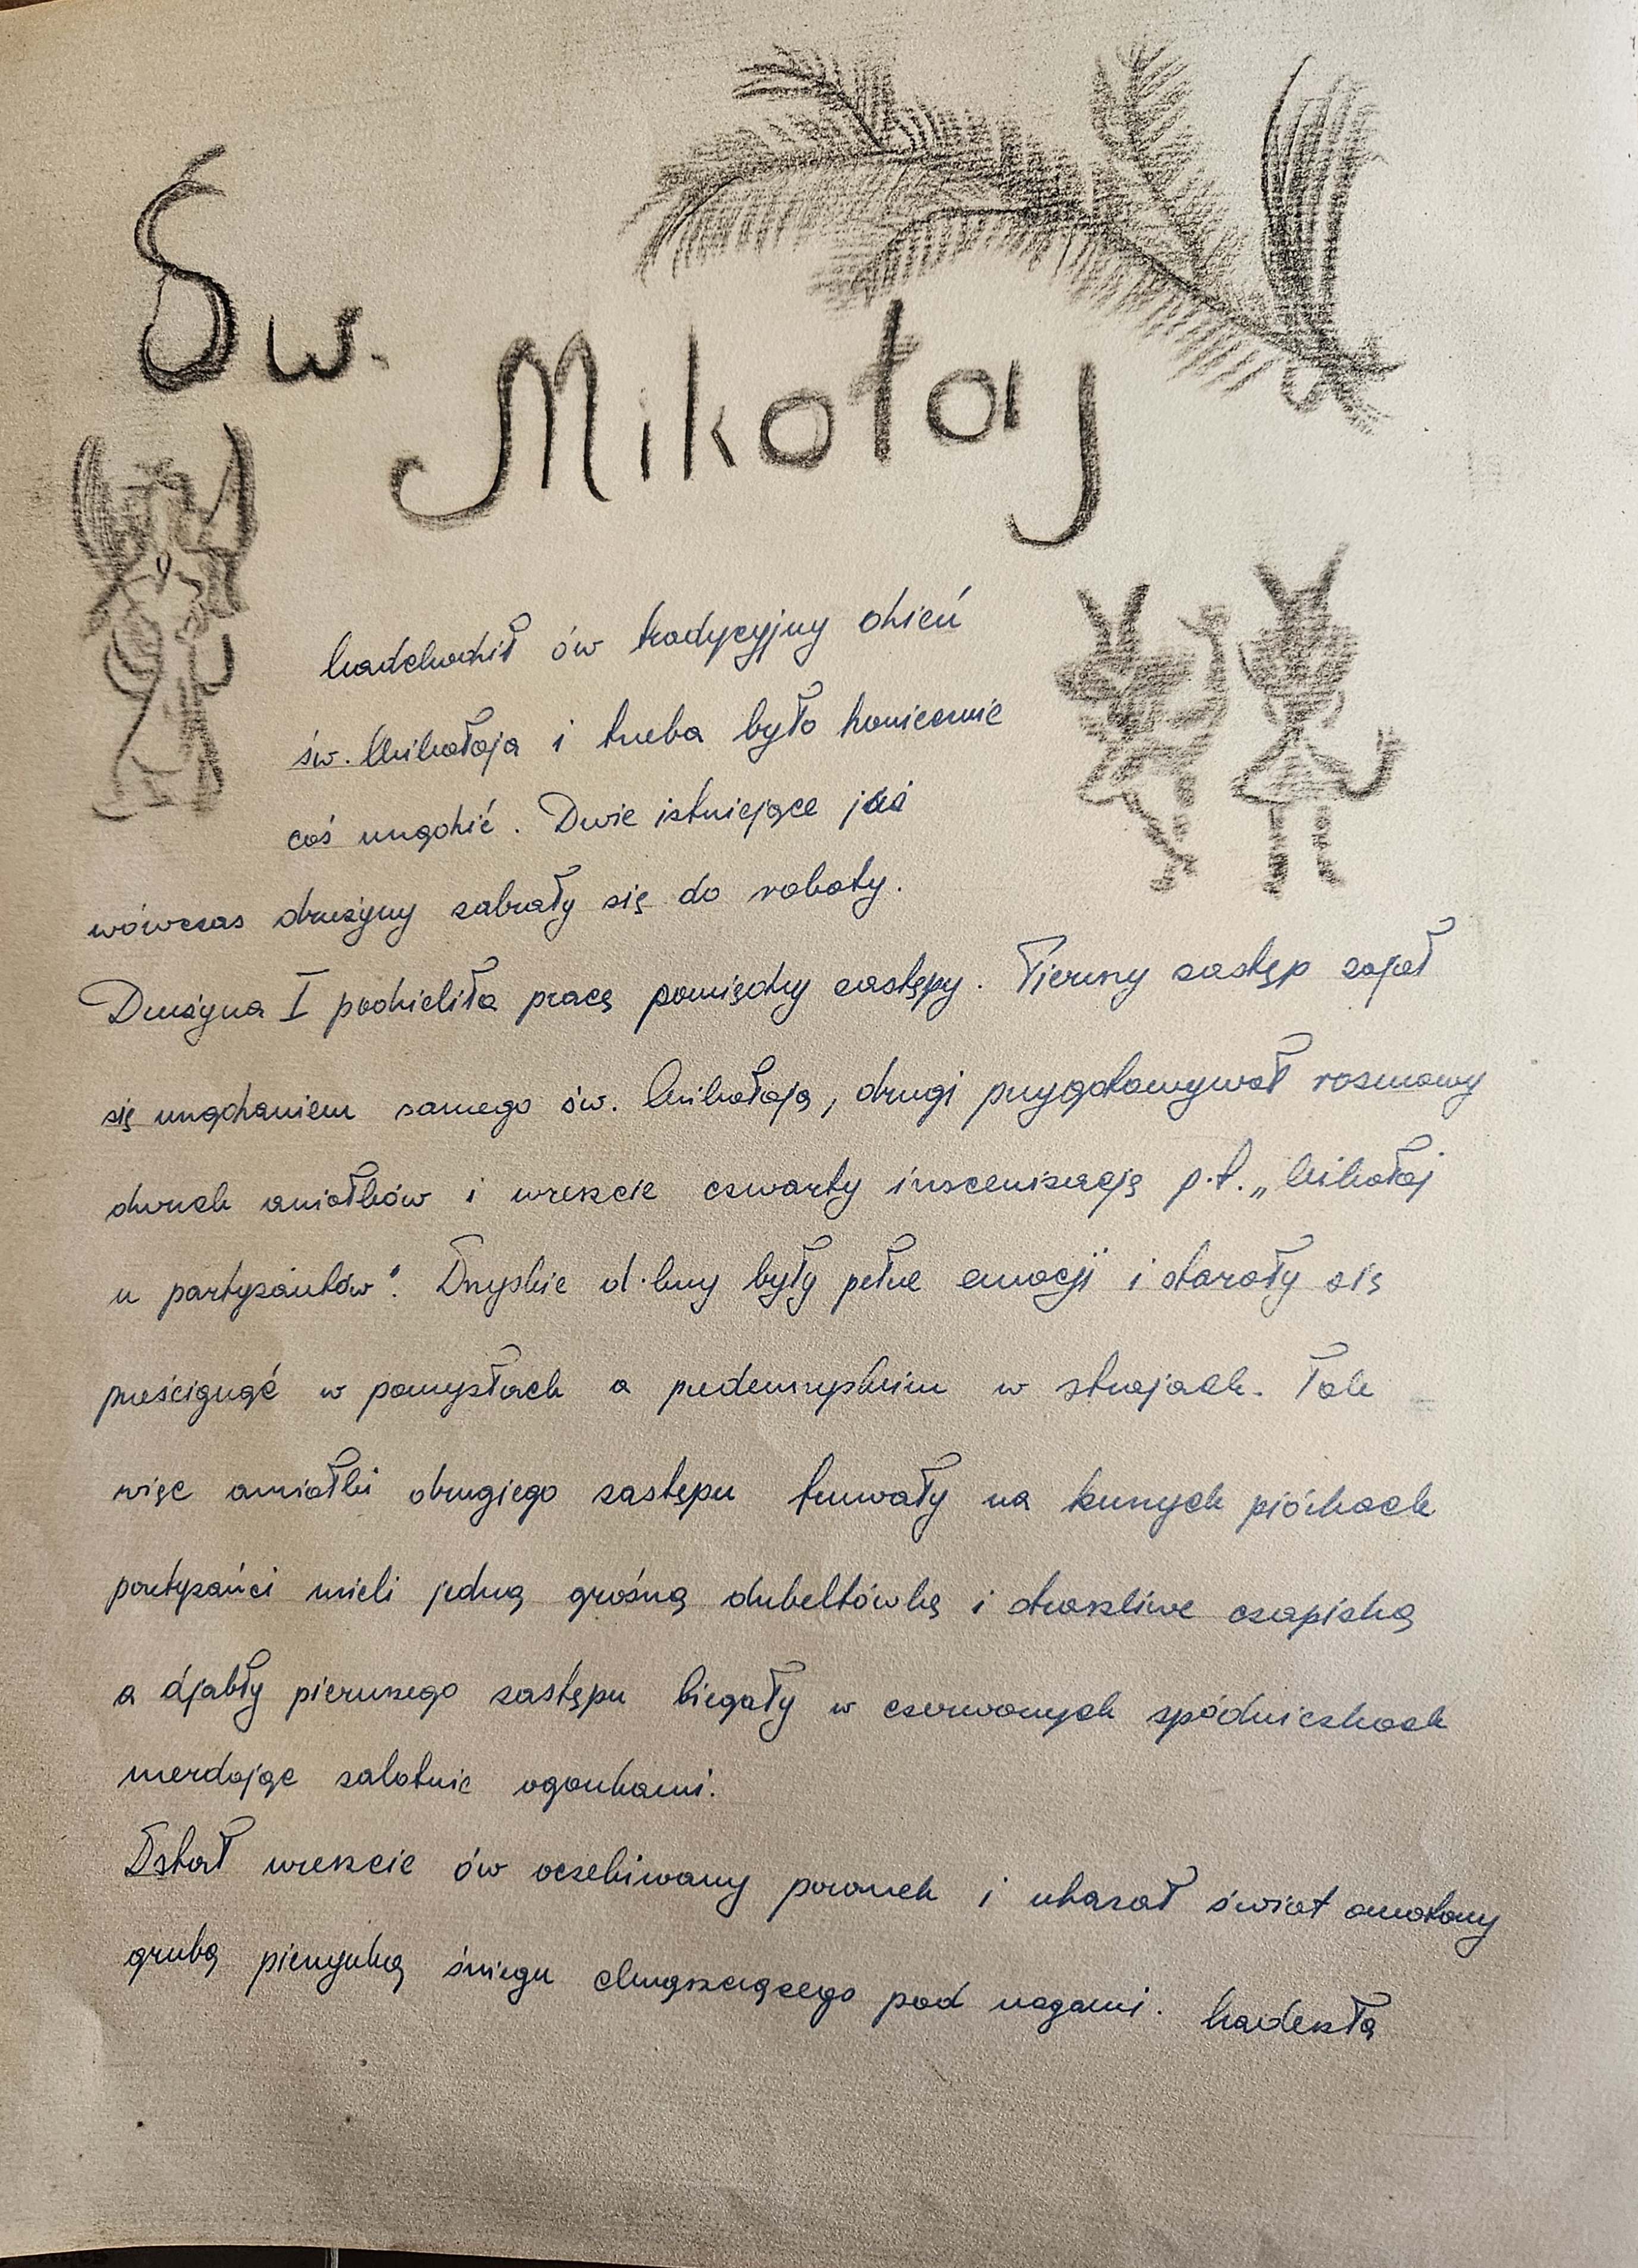 Św.
Mikołaj
Nadchodził ów tradycyjny dzień
św. Mikołaja i trzeba było koniecznie
coś urządzić. Dwie istniejące już
wówczas drużyny zabrały się do roboty.
Drużyna I podzieliła pracę pomiędzy zastępy. Pierwszy zastęp zajął
się urządzaniem samego św. Mikołaja, drugi przygotowywał rozmowy
dwuch aniołków i wreszcie czwarty inscenizację p.t. „Mikołaj
u partyzantów". Wszystkie d-hny były pełne emocji i starały się
prześcignąć w pomysłach a przedewszystkim w strojach. Tak
więc aniołki drugiego zastępu fruwały na kurzych piórkach
partyzańci mieli jedną groźną dubeltówkę i straszliwe czapiska
a djabły pierwszego zastępu biegały w czerwonych spódniczkach
merdając zalotnie ogonkami.
Wstał wreszcie ów oczekiwany poranek i ukazał świat omotany
grubą pierzynką śniegu chrząszczącego pod nogami. Nadeszła